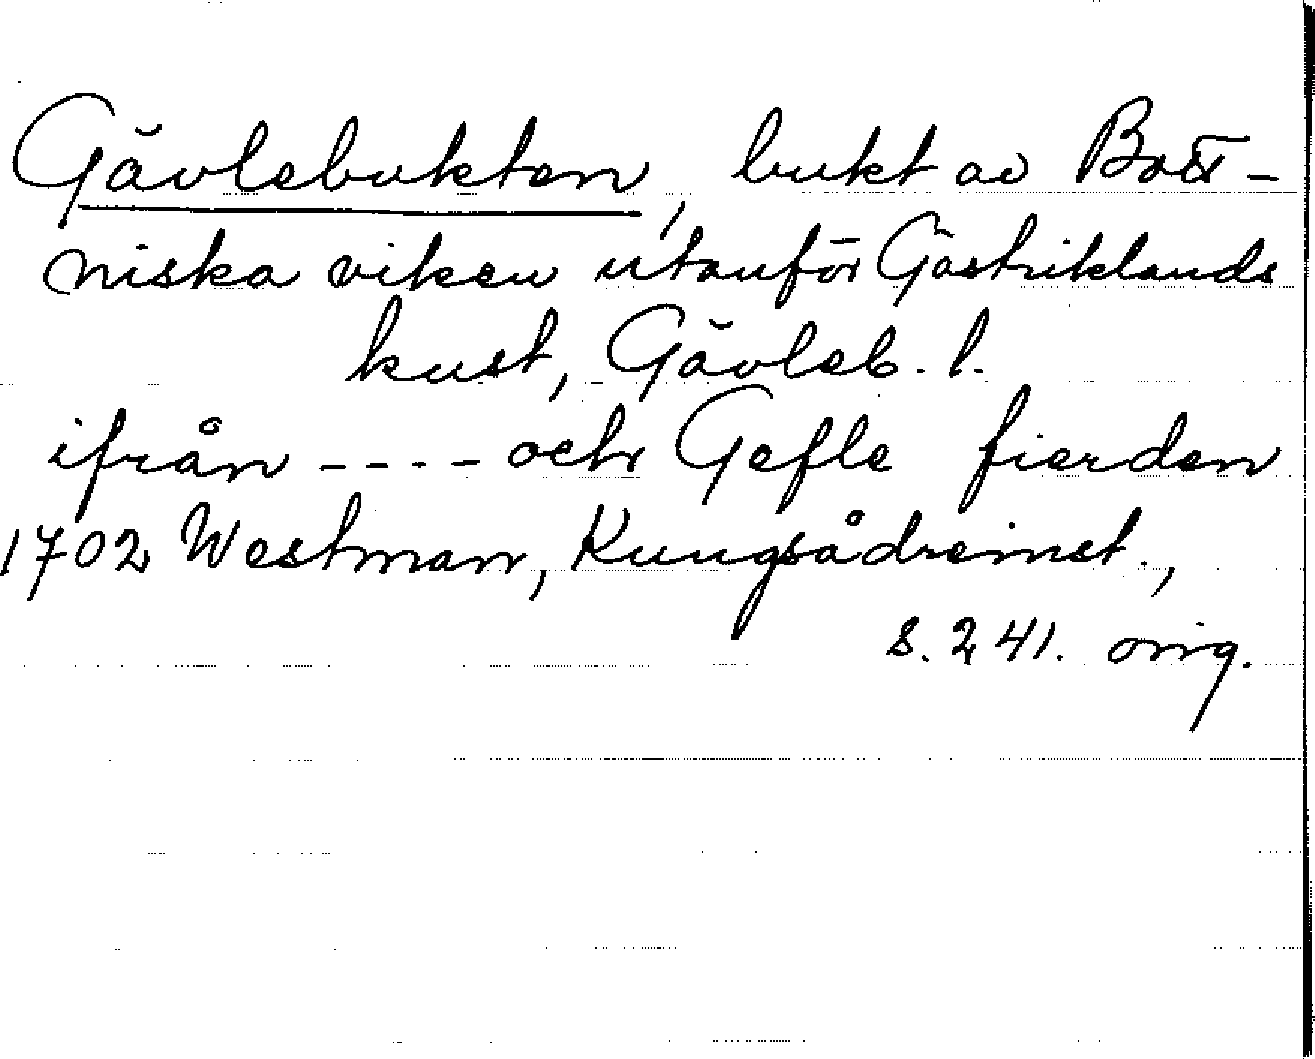 Gävlebukten, bukt av Bott-
niska viken utanför Gästriklands
kust, Gävleb. l.
ifrån - - - - och Gefle fierden
1702 Westman, Kungsådreinst.,
s. 241. orig.